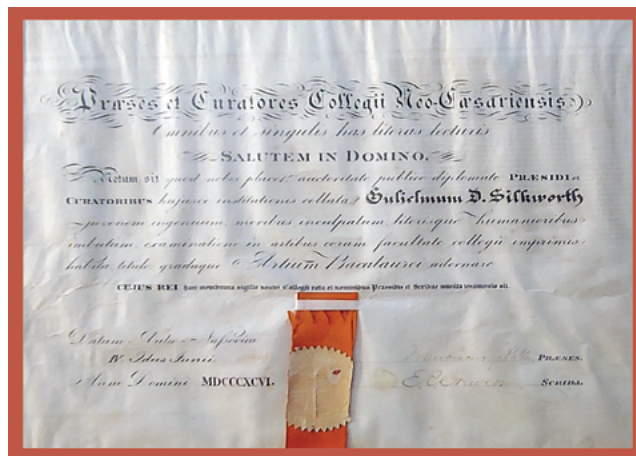 Præses et Curatores Collegii Neo-Cæsariensis
Omnibus et singulis has literas lecturis
SALUTEM IN DOMINO.
Notum sit quod nobis placet auctoritate publico diplomate PRÆSIDI et
CURATORIBUS hujusce institutionis collata Gulielmum D. Silkworth
juvenem ingenuum, moribus inculpatum, literisque humanioribus
imbutum, examinatione in artibus coram facultate collegii imprimis
habita titulo graduque Artium Baccalaurei adornare
CUJUS REI hæc membrana sigillo nostri Collegii rata et nominibus Præsidis et Scribæ munita testimonio sit.
Datum Aula Nassovica
IV. Idus Junii PRÆSES.
Anno Domini MDCCCXCVI. SCRIBA.